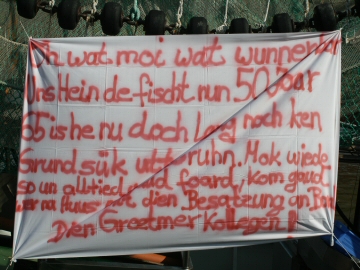 wat moi wat
Uns Hein de fischt nun 50 Joar
Ob is he nu doch lang noch ken
Grund sük uttoruhn. Mok wiede
so un alltied foard, kom gaud
na Huus mit dien Besatzung an
Dien Greetmer Kollegen!